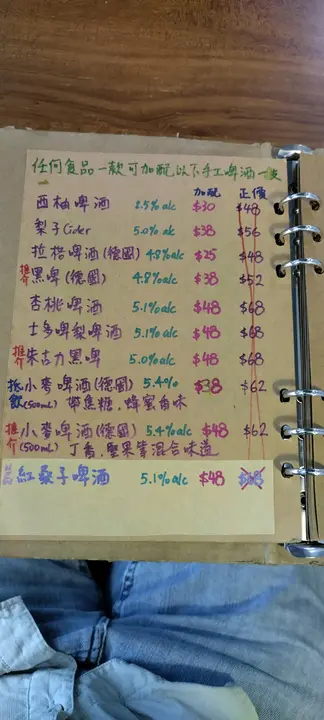 任何食品一款可加配以下手工啤酒一支
加配 正價
西柚啤酒 2.5%alc $30 $48
梨子Cider 5.0%alc $38 $56
拉格啤酒(德國) 4.8%alc $25 $48
推介 黑啤(德國) 4.8%alc $38 $52
杏桃啤酒 5.1%alc $48 $68
士多啤梨啤酒 5.1%alc $48 $68
推介 朱古力黑啤 5.0%alc $48 $68
抵飲 小麥啤酒(德國) 5.4% $38 $62
(500ml) 帶焦糖，蜂蜜香味
推介 小麥啤酒(德國) 5.4%alc $48 $62
(500ml) 丁香，堅果等混合味道
紅桑子啤酒 5.1%alc $48 $68